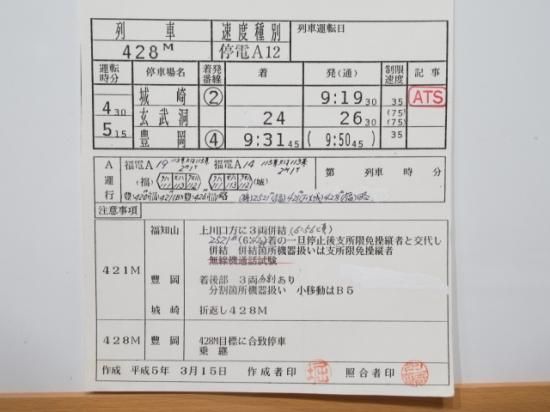 列車 速度種別 列車運転日
428M 停電A12
運転時分 停車場名 着発番線 着 発(通) 制限速度 記事
城崎 ② 9:19 30 35 ATS
4 30
玄武洞 24 26 30 (75) (75)
5 15
豊岡 ④ 9:31 45 (9:50 45) 35
A運行 福電A19 福電A14 第 列車 時分
(福) (城)
注意事項
421M 福知山 上川口方に3両併結
2521M 着の一旦停止後支所限免操縦者と交代し
併結 併結箇所機器扱いは支所限免操縦者
無線機通話試験
豊岡 着後部 3両分割あり
分割箇所機器扱い 小移動はB5
城崎 折返し428M
428M 豊岡 428M目標に合致停車
乗継
作成 平成5年 3月15日 作成者印 照合者印